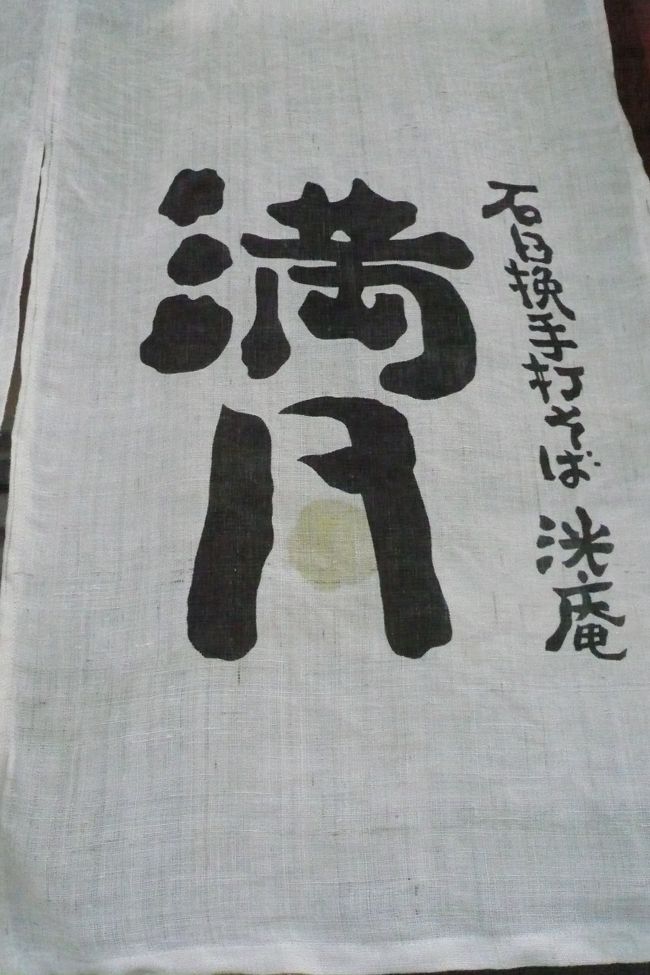 石臼挽手打そば 洸庵
満月